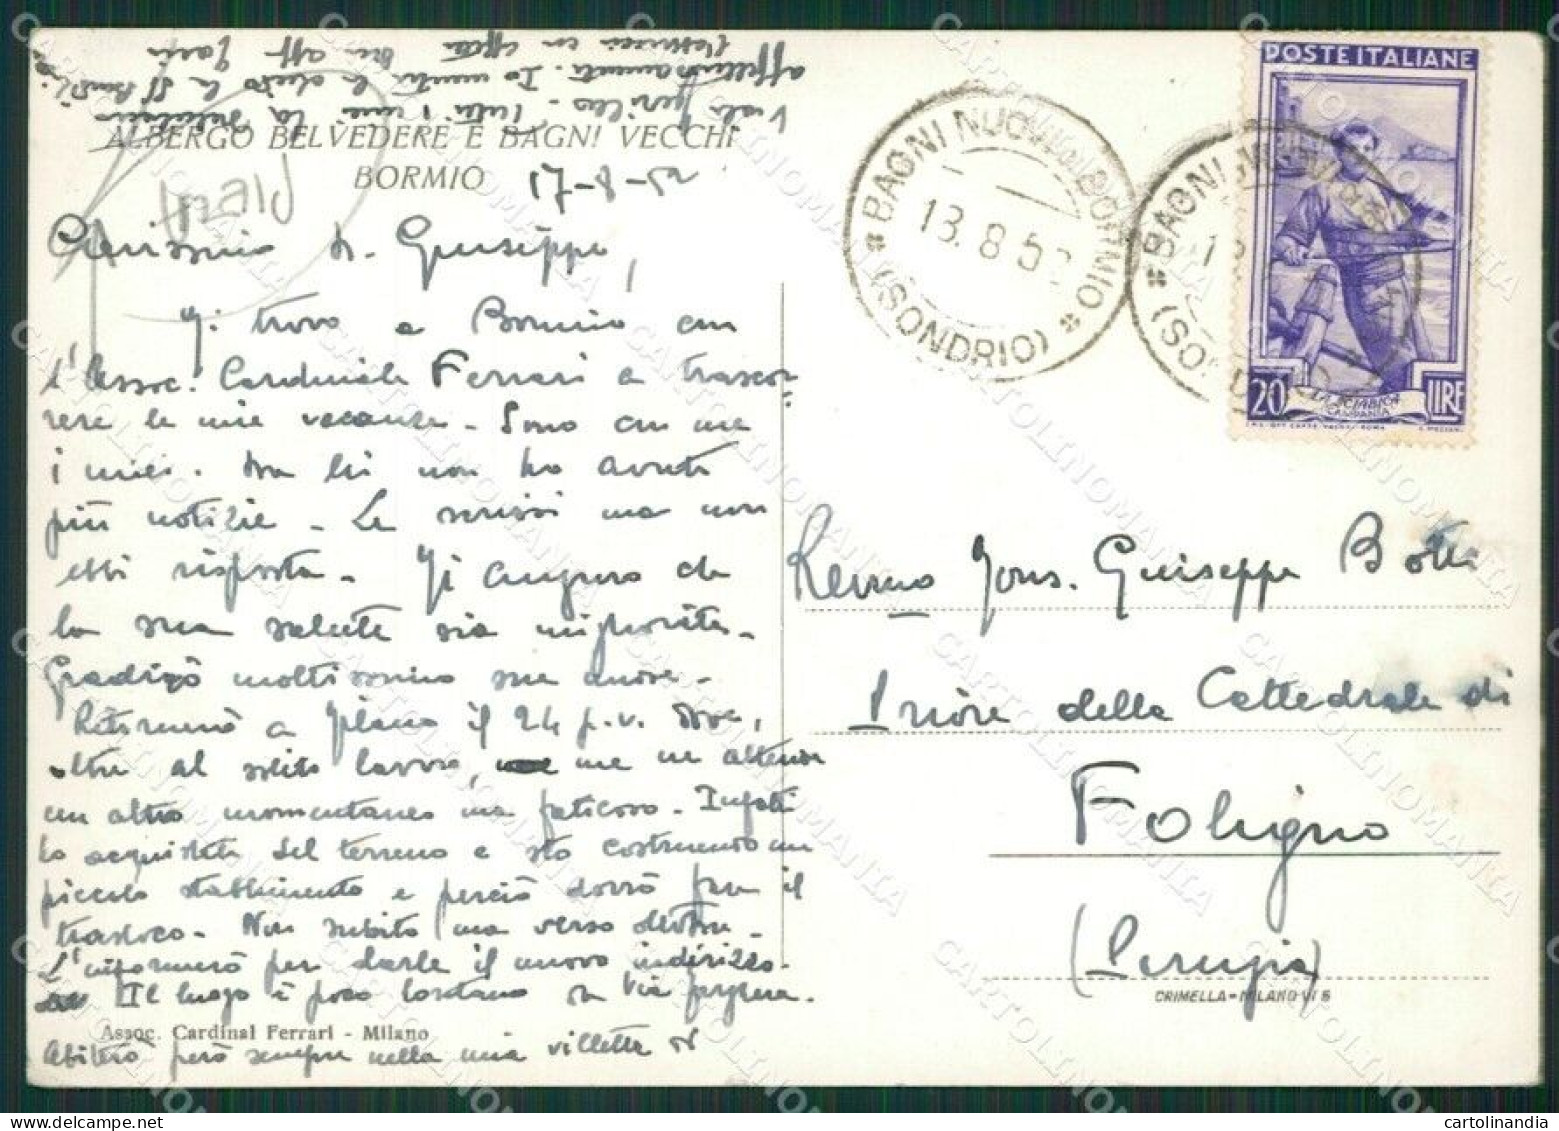 ALBERGO BELVEDERE E BAGNI VECCHI
BORMIO 17-8-52
Carissimo D. Giuseppe,
Mi trovo a Bormio con
l'Assoc. Cardinale Ferrari a trascor
rere le mie vacanze. Sono con me
i miei. Da lei non ho avuto
più notizie. Le scrissi ma non
ebbi risposta. Mi auguro che
la sua salute sia migliorata.
Gradirò moltissimo sue nuove.
Ritornerò a Milano il 24 p.v. dove,
oltre al solito lavoro, me ne attende
un altro momentaneo ma faticoso. Infatti
ho acquistato del terreno e sto costruendo un
piccolo stabilimento e perciò dovrò fare il
trasloco. Non subito, ma verso
L'informerò per darle il nuovo indirizzo.
Il luogo è poco lontano da Via
Assoc. Cardinal Ferrari - Milano
Abiterò però sempre nella mia villetta di
tutti i miei la salutano
affettuosamente. Io mentre le chiedo la
BAGNI NUOVI DI BORMIO
(SONDRIO)
13.8.5
BAGNI
(SO
POSTE ITALIANE
20 LIRE
CAMPANIA
Rev.mo Mons. Giuseppe Botti
Priore della Cattedrale di
Foligno
(Perugia)
CRIMELLA-MILANO VI 6
CARTOLINOMANIA
cartolinandia